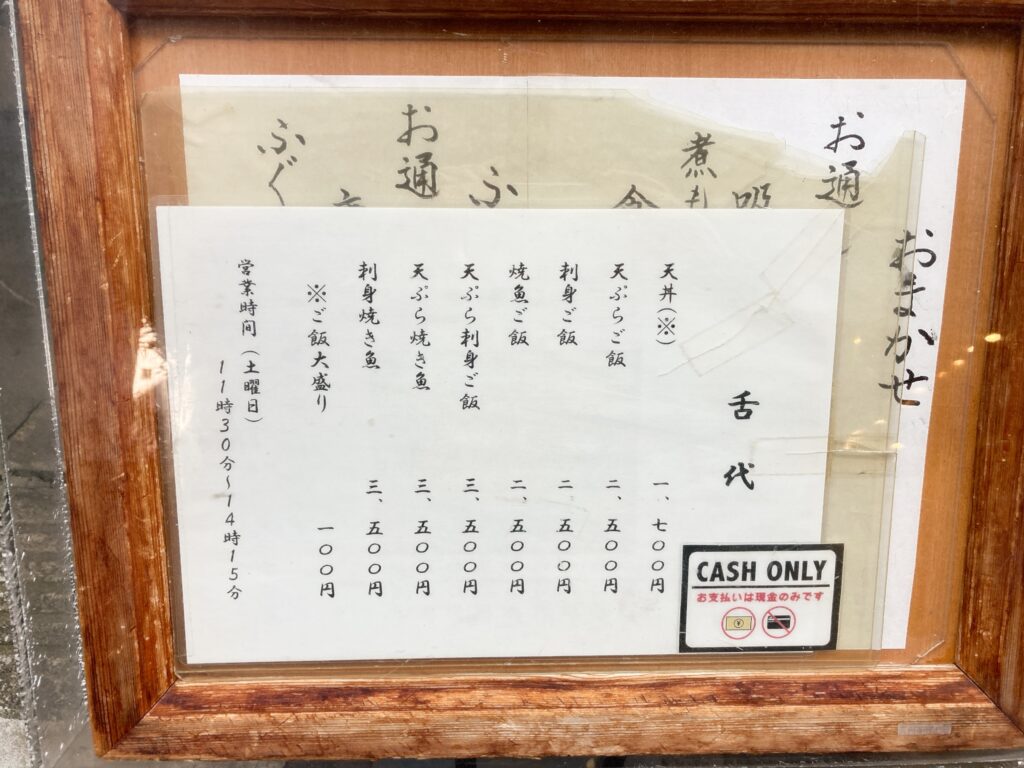 舌代
天丼(※) 一、七〇〇円
天ぷらご飯 二、五〇〇円
刺身ご飯 二、五〇〇円
焼魚ご飯 二、五〇〇円
天ぷら刺身ご飯 三、五〇〇円
天ぷら焼き魚 三、五〇〇円
刺身焼き魚 三、五〇〇円
※ご飯大盛り 一〇〇円
営業時間(土曜日)
11時30分~14時15分
CASH ONLY
お支払いは現金のみです
おまかせ
お通
煮も
ふ
お通
ふぐ